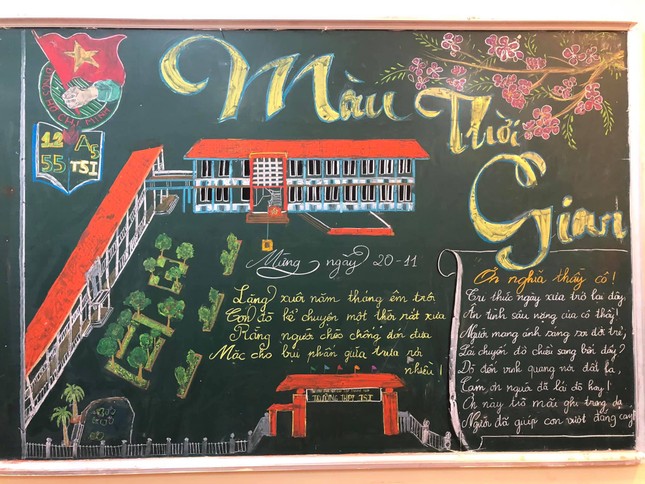 Màu
Thời
Gian
HỒ CHÍ MINH
12 A5
55 TSI
Mừng ngày 20-11
Lặng xuôi năm tháng êm trôi
Con đò kể chuyện một thời rất xưa
Rằng người chèo chống đón đưa
Mặc cho bụi phấn giữa trưa rơi
nhiều!
TRƯỜNG THPT TSI
Ơn nghĩa thầy cô!
Tri thức ngày xưa trở lại đây,
Ân tình sâu nặng của cô thầy!
Người mang ánh sáng soi đời trẻ,
Lái chuyến đò chiều sang bến đầy?
Đò đến vinh quang nơi đất lạ,
Cám ơn người đã lái đò hay!
Ơn này trò mãi ghi trong dạ
Người đã giúp con vượt đắng cay!